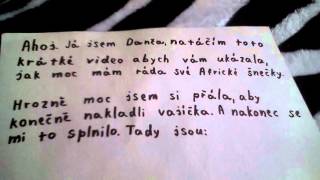 Ahoj Já jsem Danča, natáčím toto
krátké video abych vám ukázala,
jak moc mám ráda své Africké šnečky.
Hrozně moc jsem si přála, aby
konečně nakladli vajíčka. A nakonec se
mi to splnilo. Tady jsou: